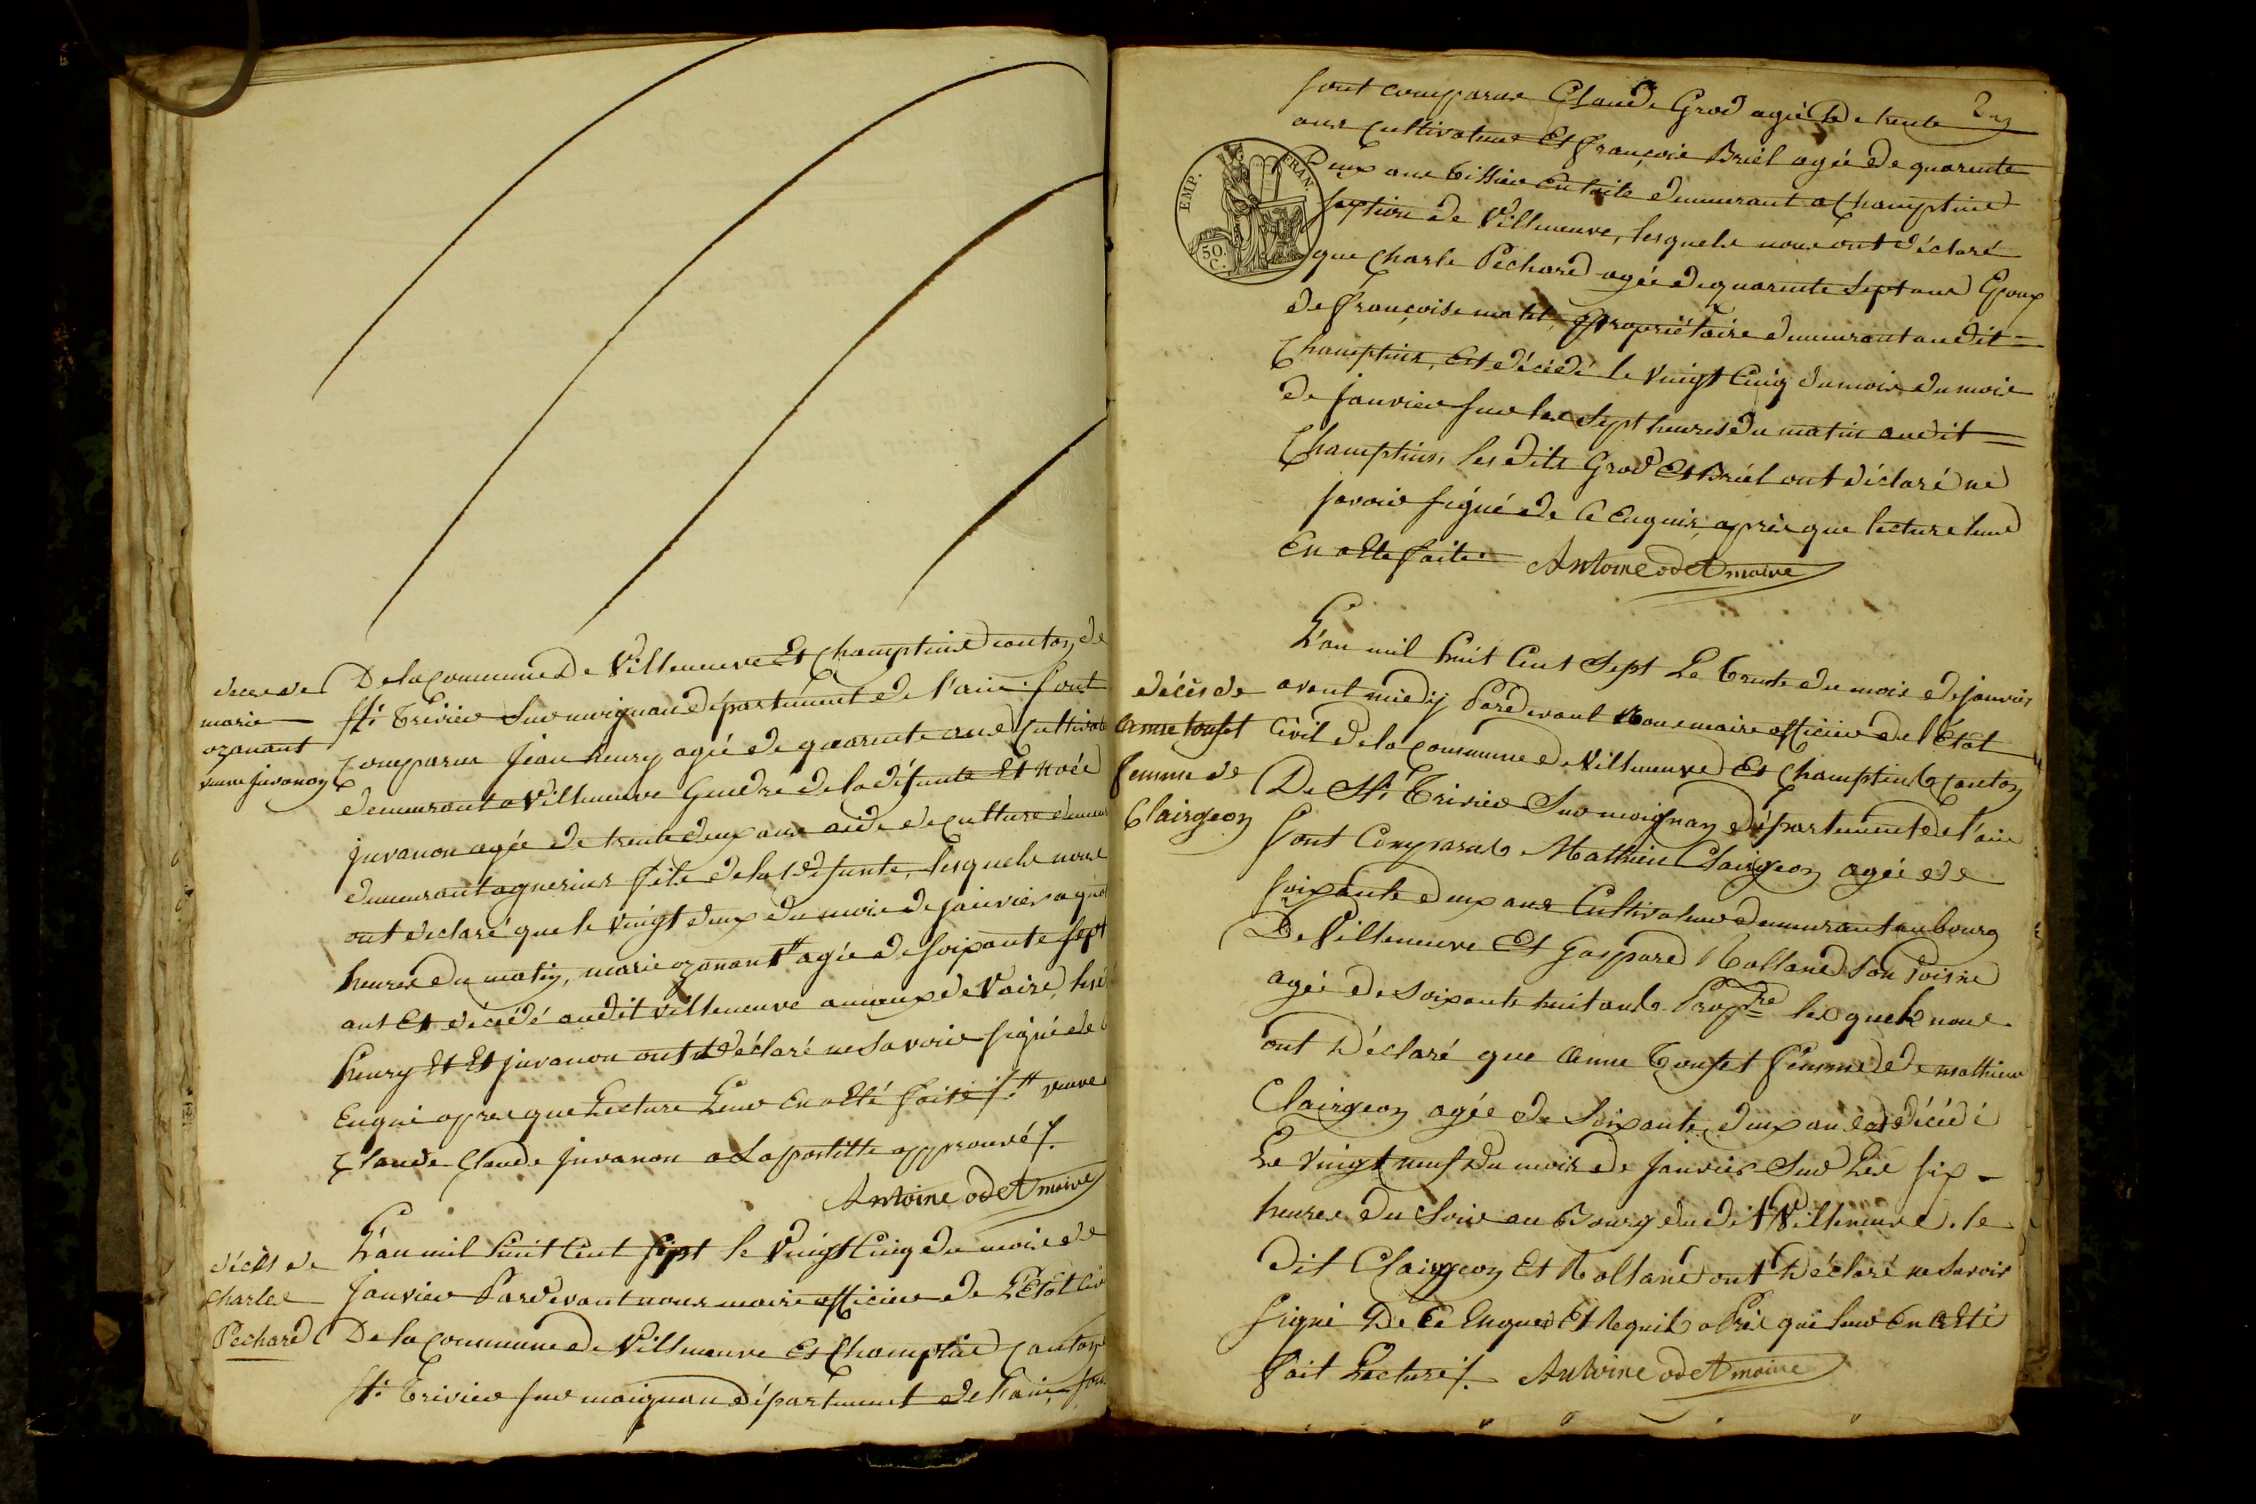 deces de
marie
ozanant
veuve juvanon
De la Commune De Villeneuve Et Champtein canton de
St. Trivier Sur moignan département de l'ain. Sont
Comparus jean henry agié de quarente ans Cultivat
demeurant a Villeneuve Gendre de la défunte Et
juvanon agée de trente deux ans aide de culture
demeurant a guerins fils de la défunte, lesquels nous
ont declaré que le vingt deux du mois de janvier a
heures du matin, marie ozanant agée de soixante sept
ans Et décédé audit villeneuve
henry Et Et juvanon ont déclaré ne savoir signé de
Enqui apres que Lecture Leur en a Eté faite ./. veuve
Claude Claude juvanon a La postille approuvé ./.
Antoine odet maire
décès de
Charles
Pechard
L'an mil huit Cent sept le Vingt Cinq du mois de
janvier Pardevant nous maire officier de L'Etat Civ
De la Commune de Villeneuve Et Champtein Canton
St. Trivier sur moignan département de l'ain, sont
sont comparus Claude Grod agié De trente
ans Cultivateur Et françois Briel agée de quarente
EMP. FRAN.
50. C.
Deux ans tissier en toile demeurant a Champtein
section de Villeneuve, lesquels nous ont déclaré
que Charle Pechard agée de quarente sept ans Epoux
de françoise matet, propriétaire demeurant audit
Champtein, Est décédé le Vingt Cinq du mois du mois
de janvier sur les sept heures du matin audit
Champtein, les dits Grod Et Briel ont déclaré ne
savoir signé de Ce Enquis, après que lecture leur
En a Eté faite. Antoine odet maire
décès de
anne touset
femme de
Clairgeon
L'an mil huit Cent Sept Le trente du mois de janvier
avant midy Pardevant Nous maire officier de l'Etat
Civil de la Commune de Villeneuve Et Champtein Canton
De St. Trivier Sur moignan département de l'ain
Sont Comparus Mathieu Clairgeon agée de
soixante deux ans Cultivateur demeurant au bourg
De Villeneuve Et Gaspard Rolland Son Voisin
agée de soixante huit ans Propre lesquels nous
ont Déclaré que anne touset femme de mathieu
Clairgeon agée de Soixante deux ans Est décédé
Le Vingt neuf du mois de janvier Sur Les six
heures du Soir au Bourg du dit Villeneuve. le
Dit Clairgeon Et Rolland ont Déclaré ne Savoir
signé De Ce Enquis Et Requis aPrès que leur En a Eté
fait Lecture ./. Antoine odet maire